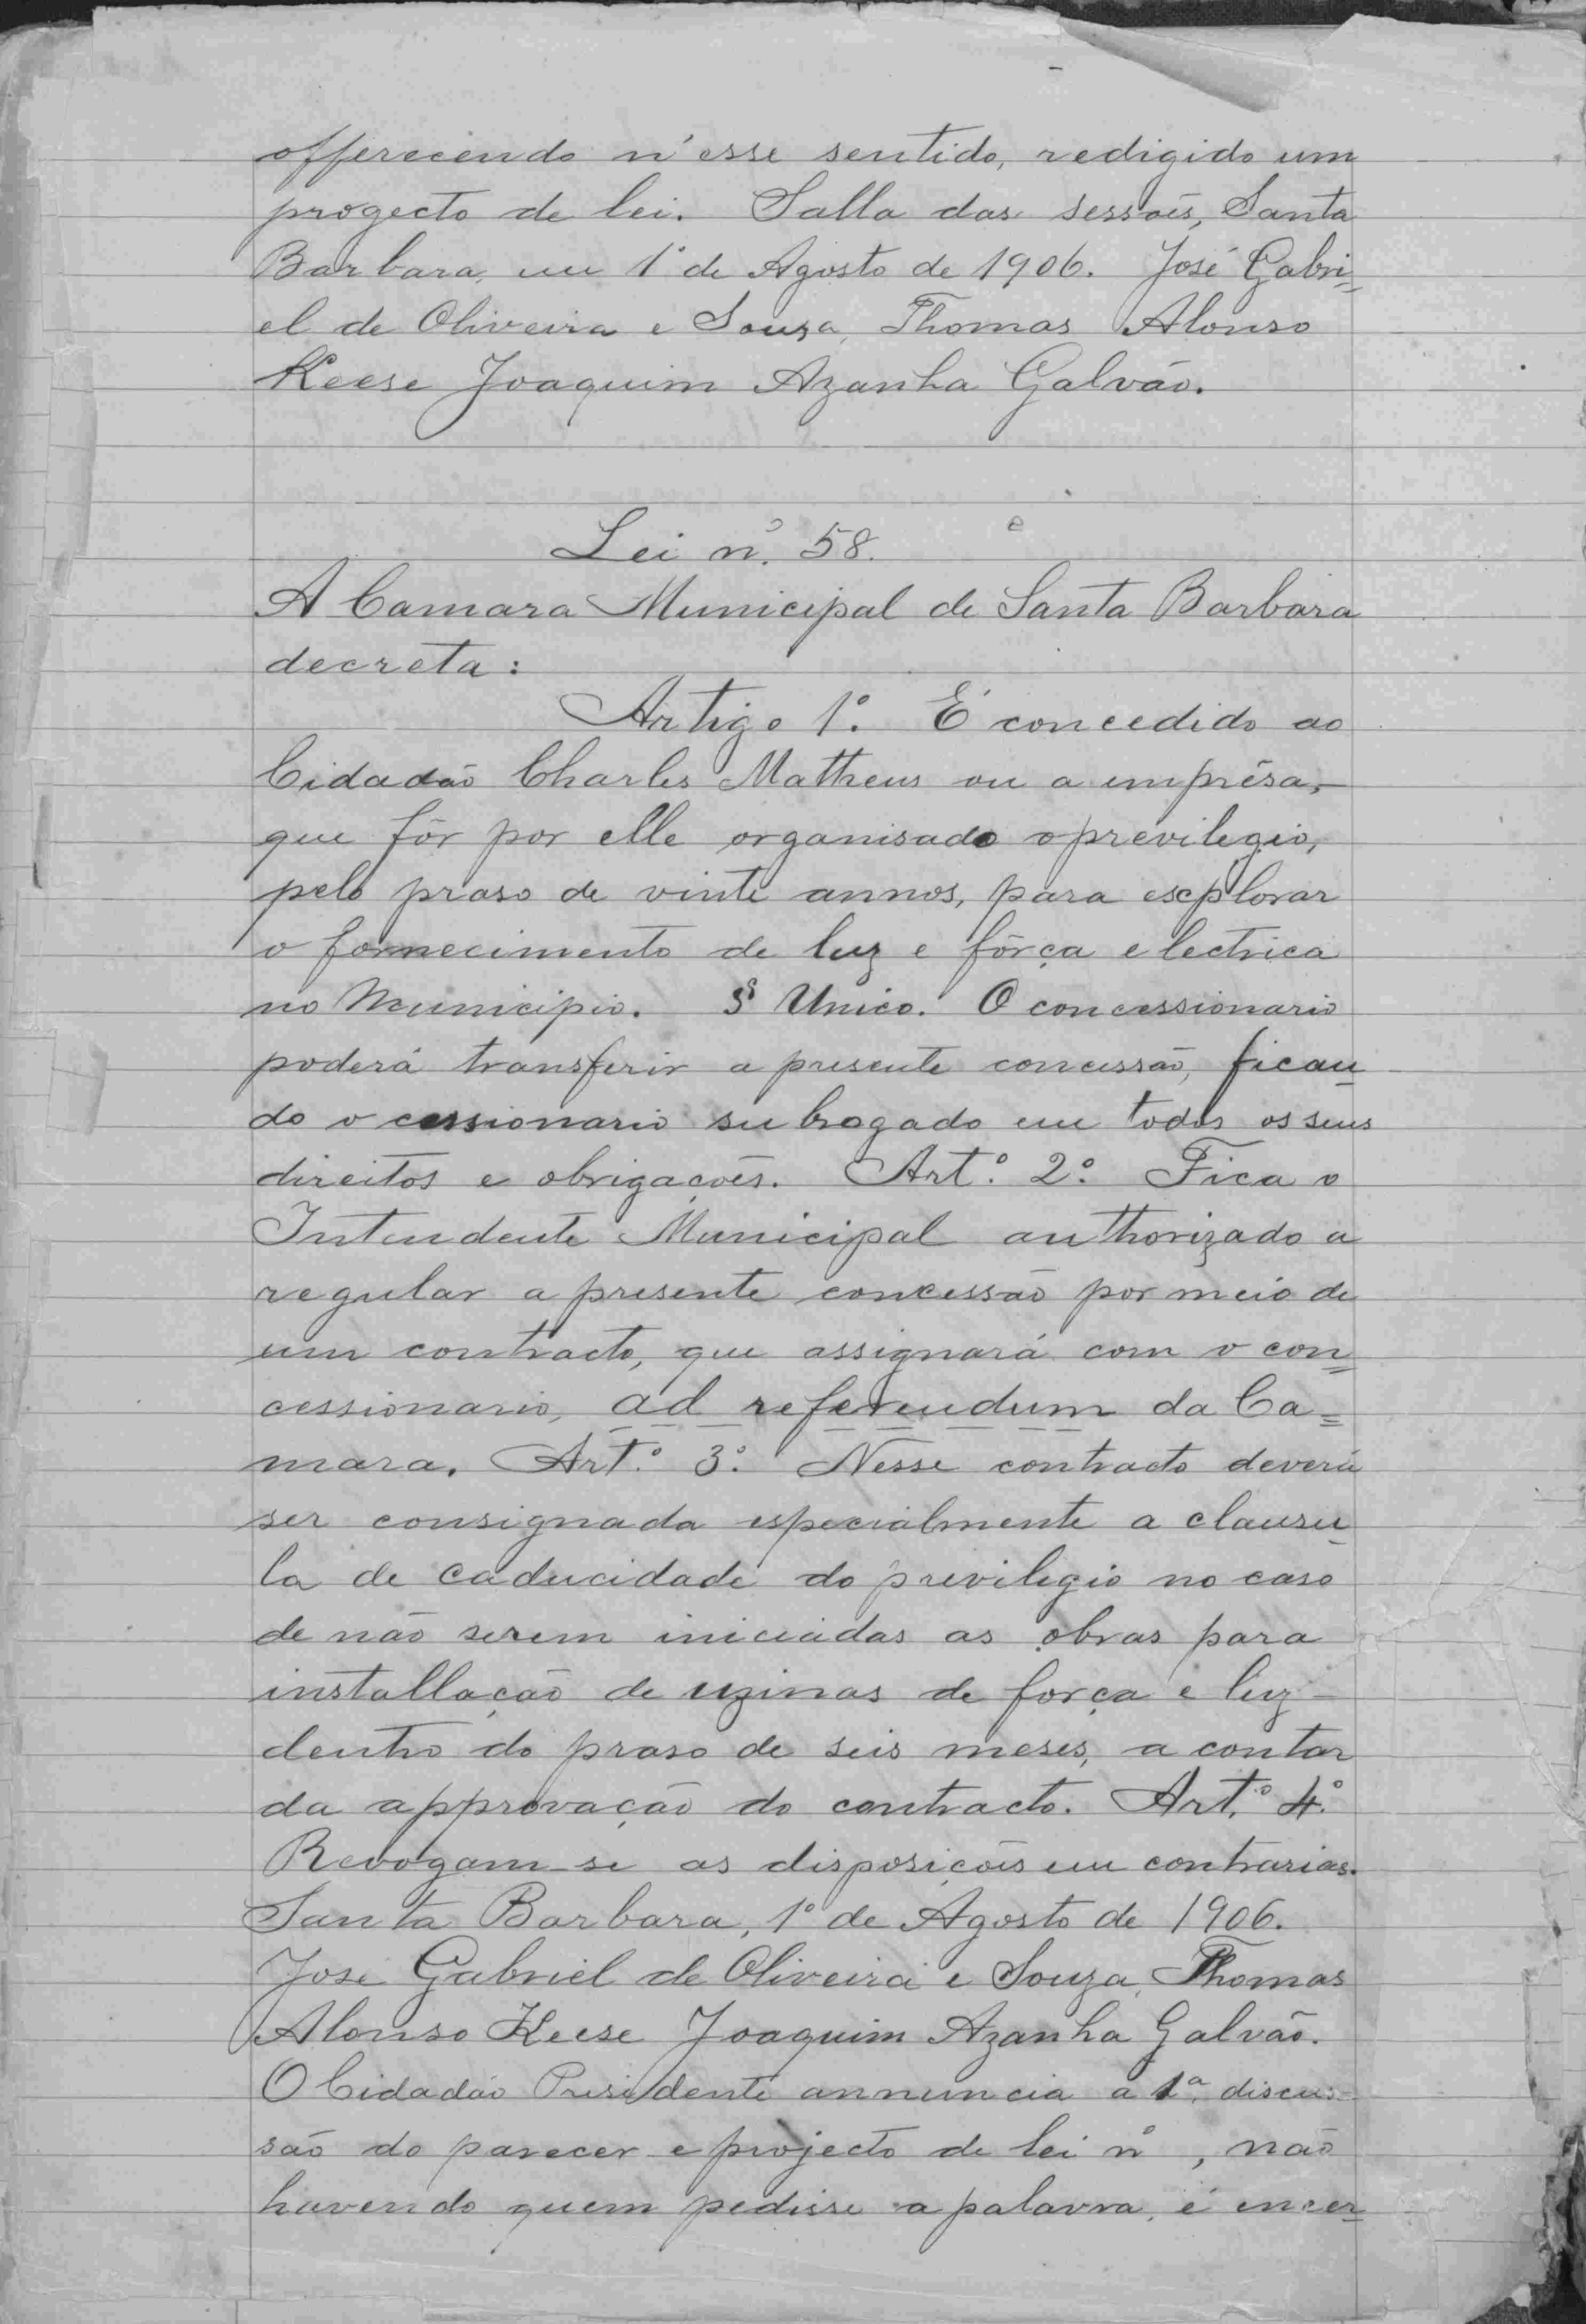 offerecendo n'esse sentido, redigido um
progecto de lei. Salla das sessoẽs, Santa
Barbara, em 1º de Agosto de 1906. José Gabri=
el de Oliveira e Souza, Thomas Alonso
Keese Joaquim Azanha Galvão.
Lei nº. 58.
A Camara Municipal de Santa Barbara
decreta:
Artigo 1º. É concedido ao
Cidadão Charles Mattheus ou a emprêsa,
que fôr por elle organisado o previlegio,
pelo praso de vinte annos, para explorar
o fornecimento de luz e fôrça electrica
no Municipio. § Unico. O concessionario
poderá transferir a presente concessão, fican-
do o cessionario subrogado em todos os seus
direitos e obrigaçoẽs. Artº. 2º. Fica o
Intendente Municipal authorizado a
regular a presente concessão por meio de
um contracto, que assignará com o con=
cessionario, ad referendum da Ca=
mara. Artº. 3º. Nesse contracto deverá
ser consignada especialmente a clausu-
la de caducidade do previlegio no caso
de não serem iniciadas as obras para
installação de uzinas de força e luz
dentro do praso de seis meses, a contar
da approvação do contracto. Art.º 4º.
Revogam-se as disposiçoẽs em contrarias.
Santa Barbara, 1º de Agosto de 1906.
José Gabriel de Oliveira e Souza, Thomas
Alonso Keese Joaquim Azanha Galvão.
O Cidadão Presidente annuncia a 1ª. discus-
são do parecer e projecto de lei nº , não
havendo quem pedisse a palavra, é encer-